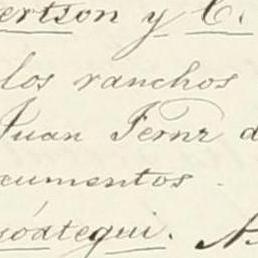 ertson y C.
los ranchos
Juan Fernz d
cumentos.
óategui. N